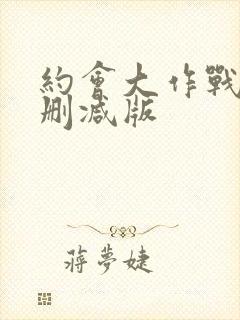 約會大作戰
刪減版
蔣夢婕